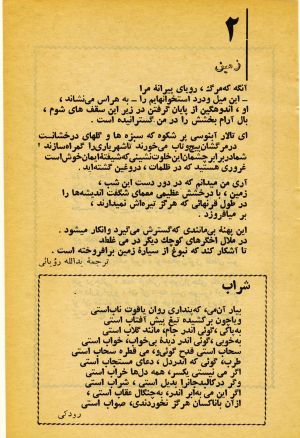 ۲
زمینی
آنگه که‌مرگ ، رویای پیرانهٔ مرا
– این میل ودرد استخوانهایم را – به هراس می‌نشاند ،
او ، اندوهگین از پایان گرفتن در زیر این سقف های شوم ،
بال آرام بخشش را در من گسترانیده است .
ای تالار آبنوسی پر شکوه که سبزه ها و گلهای درخشانت
درمرگشان‌پیچ‌وتاب می‌خورند تاشهریاری‌را گمراه‌سازند !
شمادر برابر‌چشمان‌این‌خلوت‌نشینی‌که‌شیفتهٔ‌ایمان‌خوش‌است
غروری هستید که در ظلمات ، دروغین گشته‌اید .
آری میدانم که در دور دست این شب ،
زمین ، با درخشش عظیمی معمای شگفت اندیشه‌ها را
در طول قرنهائی که هرگز تیره‌اش نمیدارند ،
بر میافروزد .
این پهنهٔ بی‌مانندی که‌گسترش می‌گیرد وانکار میشود .
در ملال اخگرهای کوچک دیگر در می غلطد
تا آشکار کند که نبوغ از سیارهٔ زمین برافروخته است .
ترجمهٔ یدالله رؤیائی
شراب
بیار آن‌می، که‌پنداری روان یاقوت ناب‌استی
ویاچون برکشیده تیغ پیش آفتاب استی
بپاکی، گوئی اندر جام، مانند گلاب استی
به‌خوبی، گوئی اندر دیدهٔ بی‌خواب، خواب استی
سحاب استی قدح گوئی‌و، می قطره سحاب استی
طرب، گوئی که اندردل ، دعای مستجاب استی
اگر می نیستی یکسر، همه دلها خراب استی
وگر درکالبدجانرا بدیل استی ، شراب استی
اگر این می به‌ابر اندر، به‌چنگال عقاب استی ،
ازآن باناکسان هرگز نخوردندی، صواب استی
رودکی